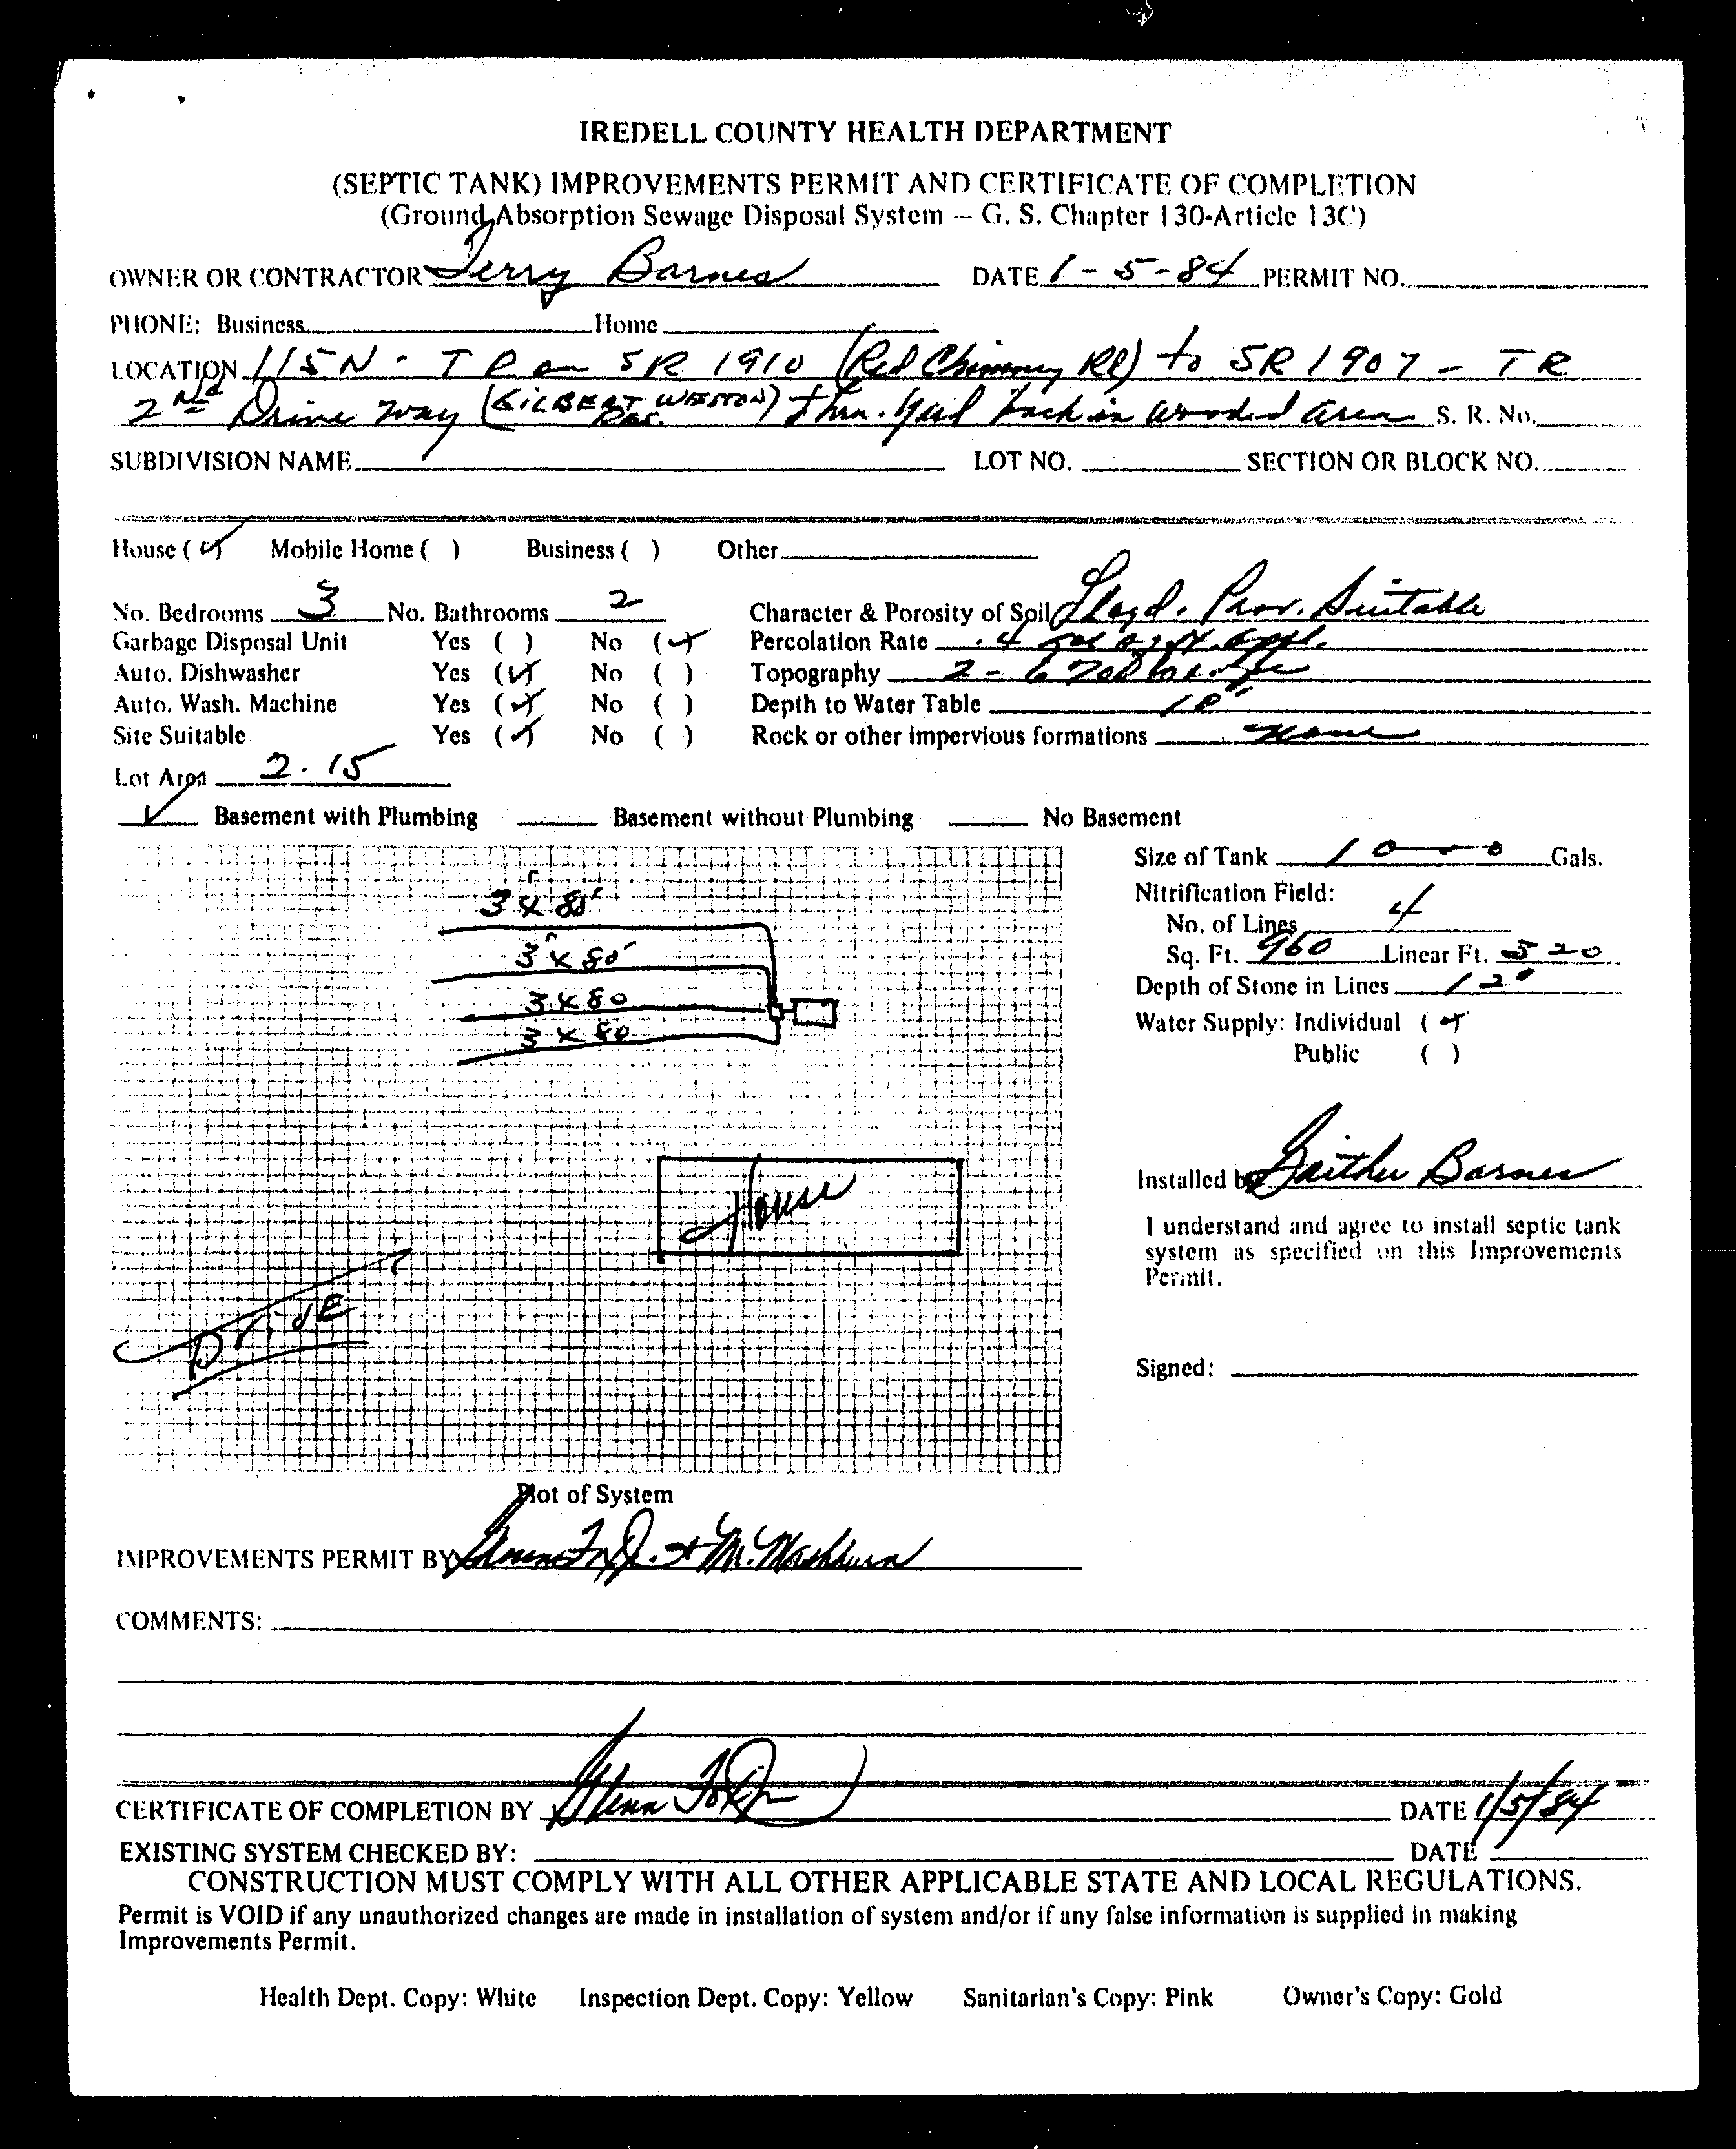 IREDELL COUNTY HEALTH DEPARTMENT
(SEPTIC TANK) IMPROVEMENTS PERMIT AND CERTIFICATE OF COMPLETION
(Ground Absorption Sewage Disposal System -- G. S. Chapter 130-Article 13C)
OWNER OR CONTRACTOR Terry Barnes DATE 1-5-84 PERMIT NO.
PHONE: Business Home
LOCATION 115N - T R on SR 1910 (Red Chimney Rd) to SR 1907 - TR
2nd Drive way (GILBERT WESTON) thru. yard back in wooded area S. R. No.
SUBDIVISION NAME LOT NO. SECTION OR BLOCK NO.
House (✓) Mobile Home ( ) Business ( ) Other
No. Bedrooms 3 No. Bathrooms 2 Character & Porosity of Soil Lloyd. Prov. Suitable
Garbage Disposal Unit Yes ( ) No (✓) Percolation Rate .4 gal
Auto. Dishwasher Yes (✓) No ( ) Topography 2 - 6 %
Auto. Wash. Machine Yes (✓) No ( ) Depth to Water Table
Site Suitable Yes (✓) No ( ) Rock or other impervious formations None
Lot Area 2.15
✓ Basement with Plumbing Basement without Plumbing No Basement
Size of Tank 1000 Gals.
Nitrification Field:
No. of Lines 4
Sq. Ft. 960 Linear Ft. 320
Depth of Stone in Lines 12"
Water Supply: Individual (✓)
Public ( )
3' x 80'
3' x 80'
3 x 80
3 x 80
House
DriVE
Installed by Gaither Barnes
I understand and agree to install septic tank
system as specified on this Improvements
Permit.
Signed:
Plot of System
IMPROVEMENTS PERMIT BY M. Washburn
COMMENTS:
CERTIFICATE OF COMPLETION BY Glenn DATE 1/5/84
EXISTING SYSTEM CHECKED BY: DATE
CONSTRUCTION MUST COMPLY WITH ALL OTHER APPLICABLE STATE AND LOCAL REGULATIONS.
Permit is VOID if any unauthorized changes are made in installation of system and/or if any false information is supplied in making
Improvements Permit.
Health Dept. Copy: White Inspection Dept. Copy: Yellow Sanitarian's Copy: Pink Owner's Copy: Gold